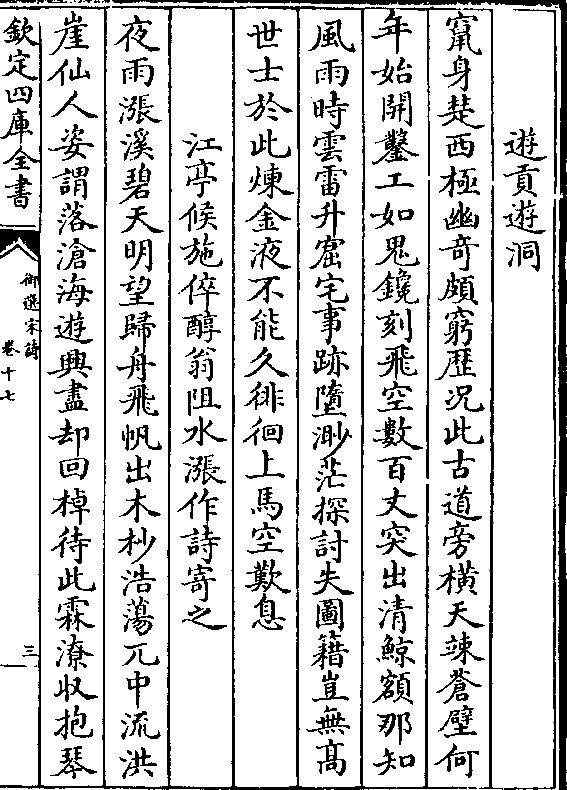 遊貢遊洞
竄身楚西極幽奇頗窮歷况此古道旁橫天竦蒼壁何
年始開鑿工如鬼鑱刻飛空數百丈突出清鯨額那知
風雨時雲雷升窟宅事跡墮渺茫探討失圖籍豈無髙
世士於此煉金液不能久徘徊上馬空歎息
江亭候施倅醇翁阻水漲作詩寄之
夜雨漲溪碧天明望歸舟飛帆出木杪浩蕩兀中流洪
崖仙人姿謂落滄海遊興盡却回棹待此霖潦收抱琴
欽定四庫全書
御選宋詩
卷十七
三